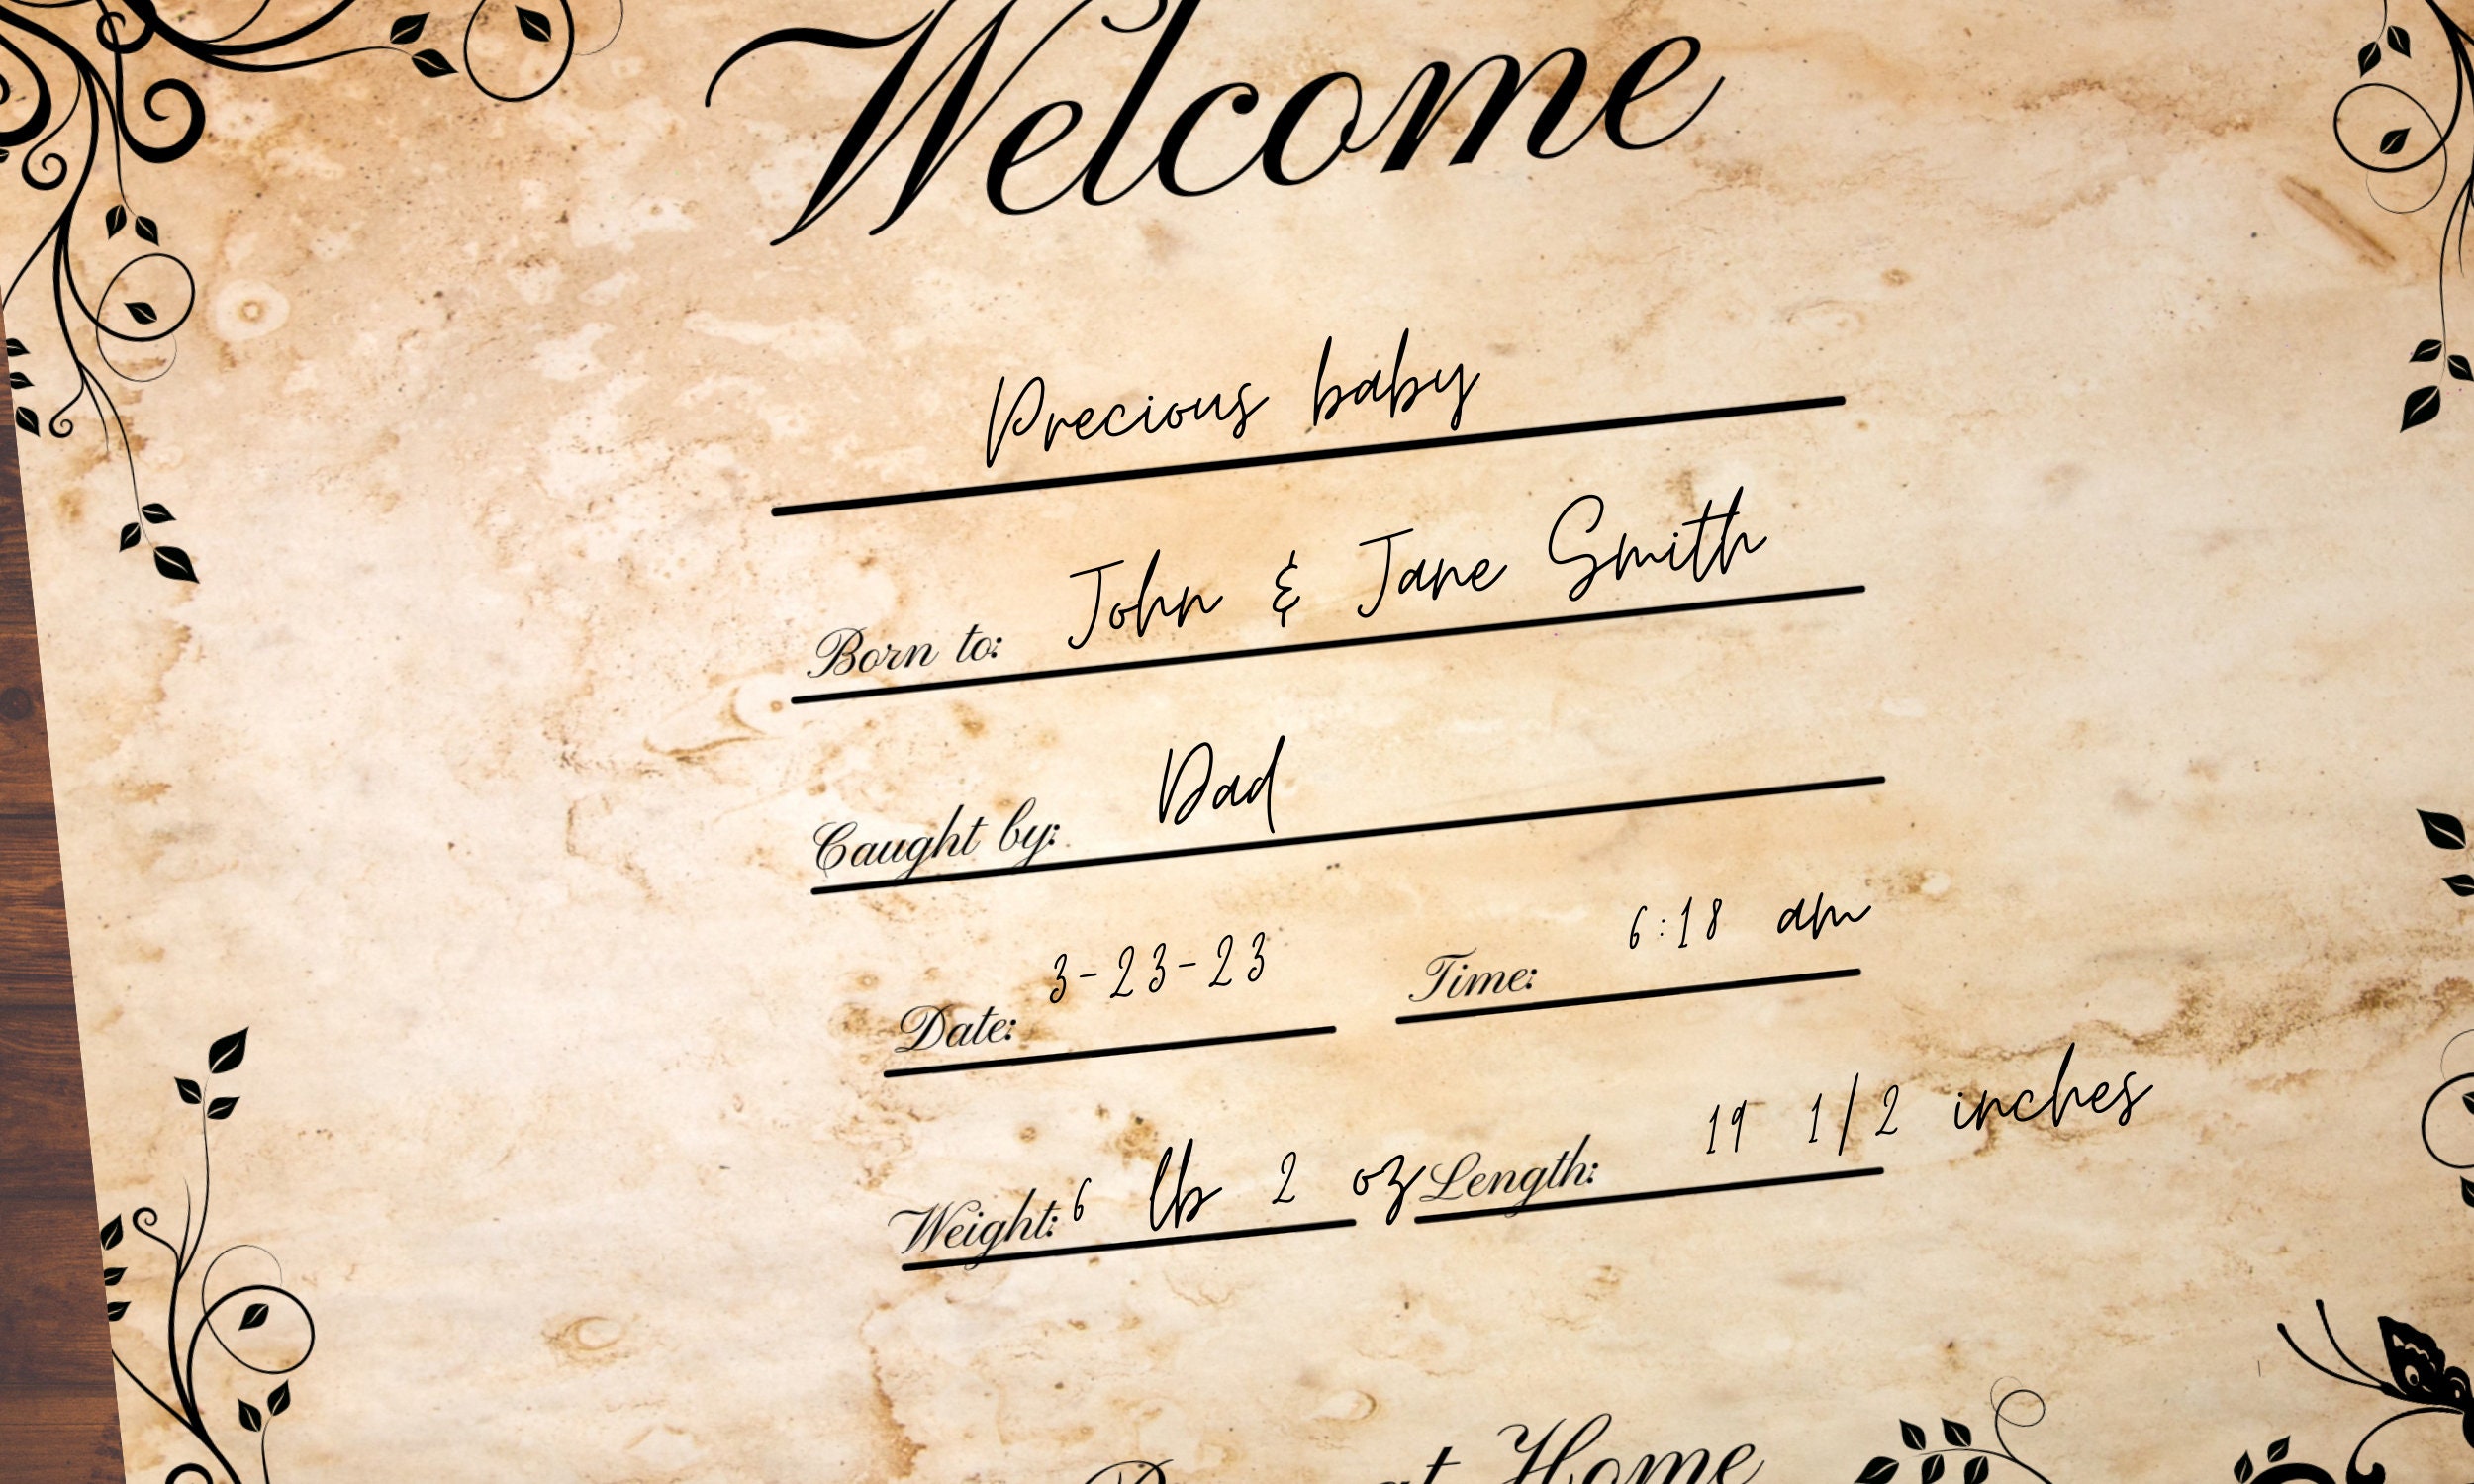 Welcome
Precious baby
Born to: John & Jane Smith
Caught by: Dad
Date: 3-23-23 Time: 6:18 am
Weight: 6 lb 2 oz Length: 19 1/2 inches
at Home